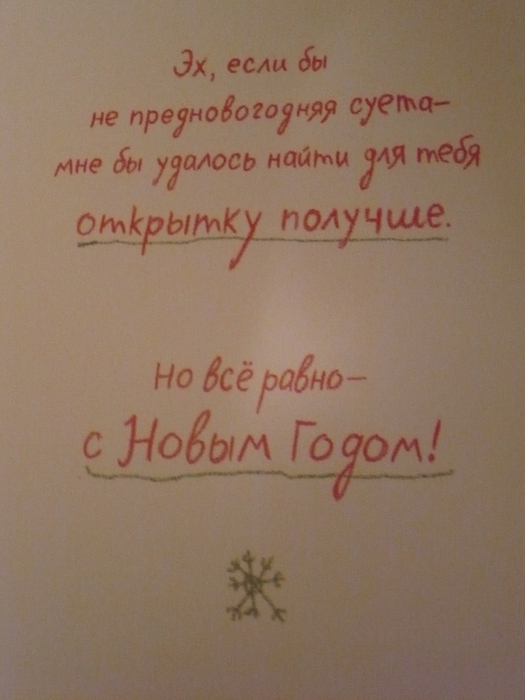 Эх, если бы
не предновогодняя суета—
мне бы удалось найти для тебя
открытку получше.
Но всё равно—
с Новым Годом!